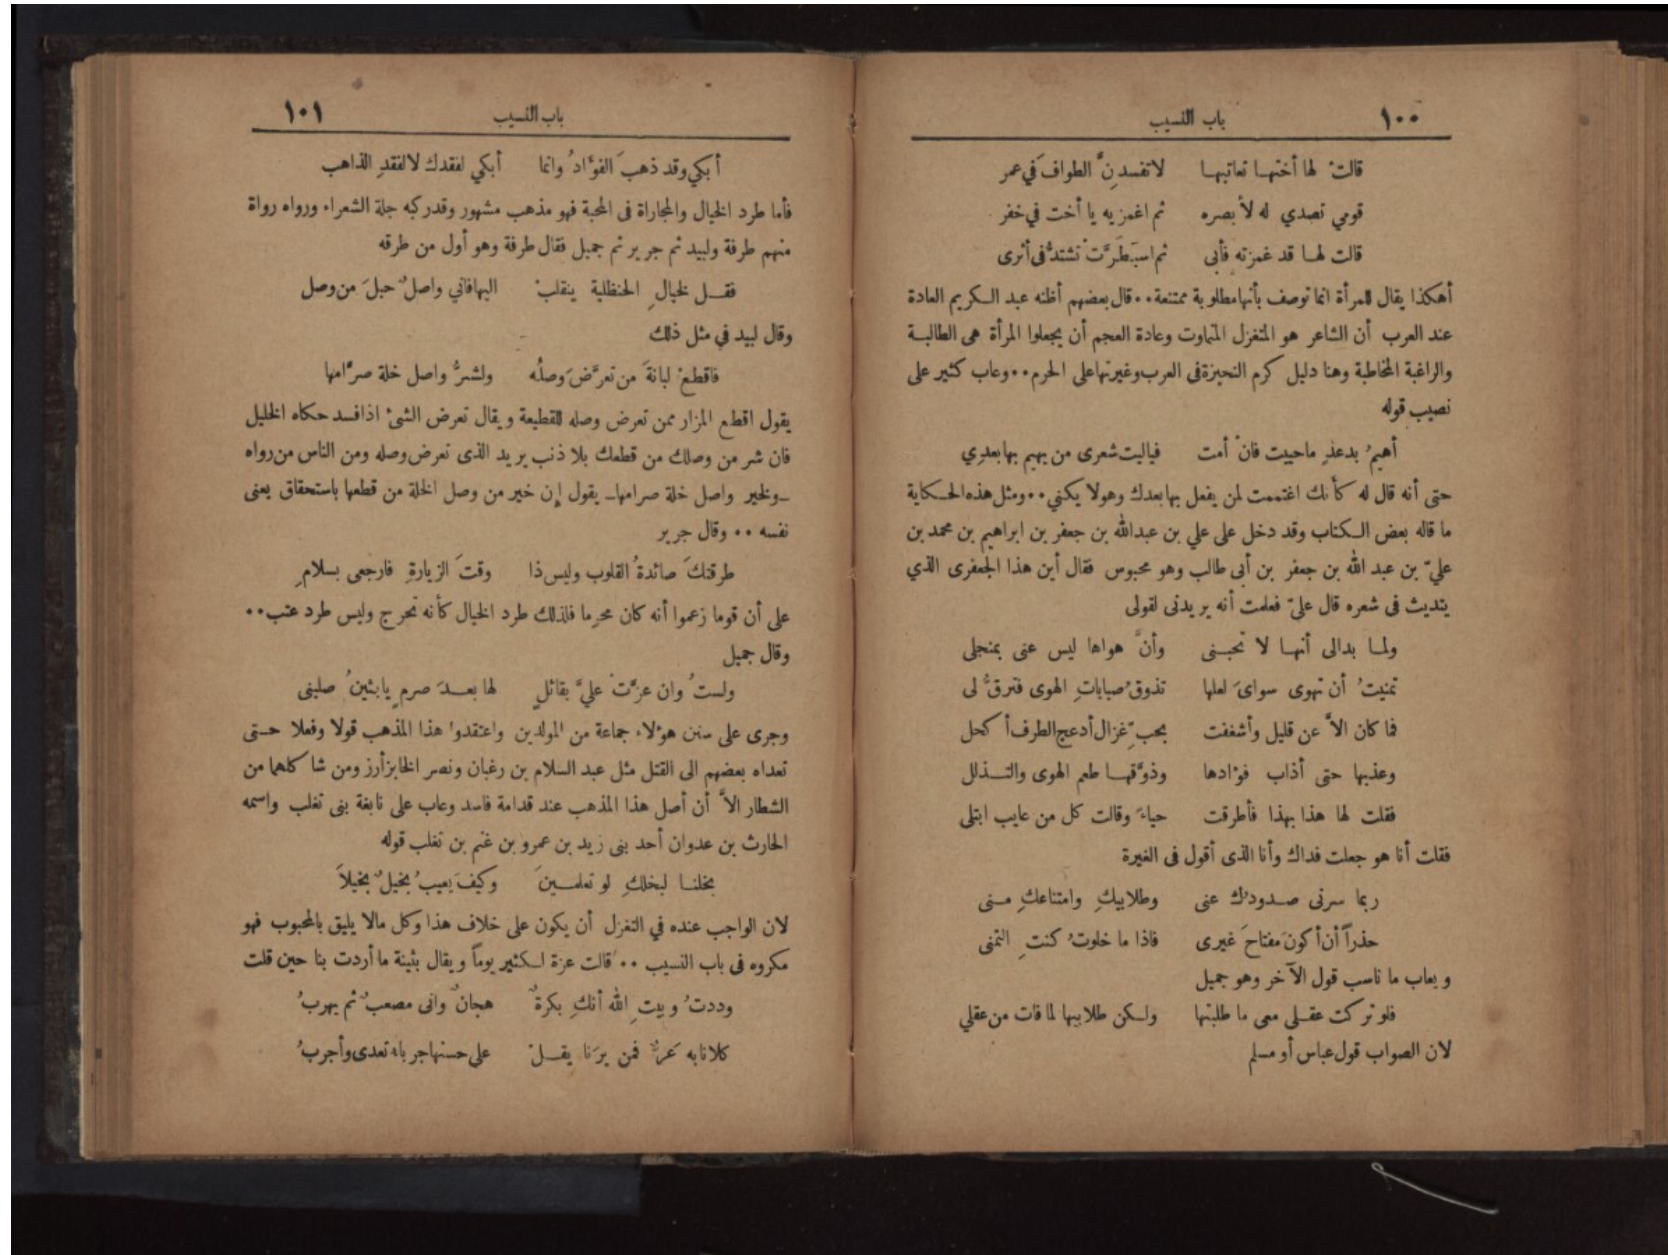 ١٠٠ باب النسيب
قالتْ لها أختهـا تعاتبهـا لاتفسدنَّ الطوافَ في عمر
قومي تصدي له لأبصره ثم اغمزيه يا أخت في خفر
قالت لهـا قد غمزته فأبى ثم اسبَطَرَّتْ تشتدُّ في أثرى
أهكذا يقال للمرأة انما توصف بأنها مطلوبة ممتنعة٠٠قال بعضهم أظنه عبد الـكريم العادة
عند العرب أن الشاعر هو المتغزل المتماوت وعادة العجم أن يجعلوا المرأة هى الطالبـة
والراغبة المخاطبة وهنا دليل كرم النحيزة فى العرب وغيرتها على الحرم٠٠وعاب كثير على
نصيب قوله
أهيمُ بدعدٍ ماحييت فانْ أمت فياليت شعرى من يهيم بها بعدِي
حتى أنه قال له كأنك اغتممت لمن يفعل بها بعدك وهولا يكني٠٠ومثل هذه الحـكاية
ما قاله بعض الـكتاب وقد دخل على علي بن عبدالله بن جعفر بن ابراهيم بن محمد بن
عليّ بن عبد الله بن جعفر بن أبى طالب وهو محبوس فقال أين هذا الجعفرى الذي
يتديث فى شعره قال عليّ فعلمت أنه يريدنى لقولى
ولمـا بدالى أنهـا لا تحبـنى وأنَّ هواها ليس عنى بمنجلى
تمنيتُ أن تهوى سوايَ لعلها تذوقُ صباباتِ الهوى فترقُّ لى
فما كان الاَّ عن قليل وأشغفت بحبّ غزال أدعج الطرف أكحل
وعذبها حتى أذاب فؤادها وذوَّقهـا طعم الهوى والتـذلل
فقلت لها هذا بهذا فأطرقت حياءً وقالت كل من عايب ابتلى
فقلت أنا هو جعلت فداك وأنا الذى أقول فى الغيرة
ربما سرنى صـدودُك عنى وطلابيكِ وامتناعكِ مـنى
حذراً أن أكونَ مفتاحَ غيرى فاذا ما خلوتُ كنتِ التمنى
ويعاب ما ناسب قول الآخر وهو جميل
فلو تركت عقـلى معى ما طلبتها ولـكن طلابيها لما فات من عقلي
لان الصواب قول عباس أو مسلم
باب النسيب ١٠١
أبكي وقد ذهبَ الفؤادُ وانما أبكي لفقدك لالفقدِ الذاهب
فأما طرد الخيال والمجاراة فى المحبة فهو مذهب مشهور وقدركبه جلة الشعراء ورواه رواة
منهم طرفة ولبيد ثم جرير ثم جميل فقال طرفة وهو أول من طرقه
فقـل لخيالِ الحنظلية ينقلبْ اليهافاني واصلٌ حبلَ من وصل
وقال لبيد في مثل ذلك
فاقطعْ لبانةَ من تعرَّضَ وصلُه ولشرُّ واصل خلة صرَّامها
يقول اقطع المزار ممن تعرض وصله للقطيعة ويقال تعرض الشئ اذافسد حكاه الخليل
فان شر من وصلك من قطعك بلا ذنب يريد الذى تعرض وصله ومن الناس من رواه
ـولخير واصل خلة صرامهاـ يقول إن خير من وصل الخلة من قطعها باستحقاق يعنى
نفسه ٠٠ وقال جرير
طرقتكَ صائدةُ القلوب وليس ذا وقتَ الزيارةِ فارجعى بسلامِ
على أن قوما زعموا أنه كان محرما فلذلك طرد الخيال كأنه تحرج وليس طرد عتب٠٠
وقال جميل
ولستُ وان عزَّتْ عليَّ بقائلٍ لها بعـدَ صرمٍ يابثينُ صلينى
وجرى على سنن هؤلاء جماعة من المولدين واعتقدوا هذا المذهب قولا وفعلا حـتى
تعداه بعضهم الى القتل مثل عبد السلام بن رغبان ونصر الخابزأرز ومن شاكلهما من
الشطار الاَّ أن أصل هذا المذهب عند قدامة فاسد وعاب على نابغة بنى تغلب واسمه
الحارث بن عدوان أحد بنى زيد بن عمرو بن غنم بن تغلب قوله
بخلنـا لبخلكِ لو تعلمـينَ وكيفَ يعيبُ بخيلٌ بخيلاَ
لان الواجب عنده في التغزل أن يكون على خلاف هذا وكل مالا يليق بالمحبوب فهو
مكروه فى باب النسيب ٠٠ قالت عزة لـكثير يوماً ويقال بثينة ما أردت بنا حين قلت
وددتُ وبيتِ الله أنكِ بكرةٌ هجانٌ وانى مصعبٌ ثم نهربُ
كلانا به عرٌّ فمن يرَنا يقـلْ على حسنها جرباء تعدى وأجربُ